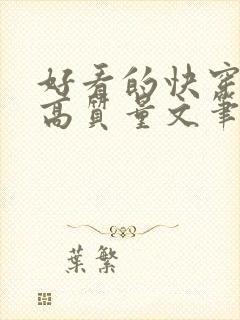 好看的快穿
高質量文筆
葉繁